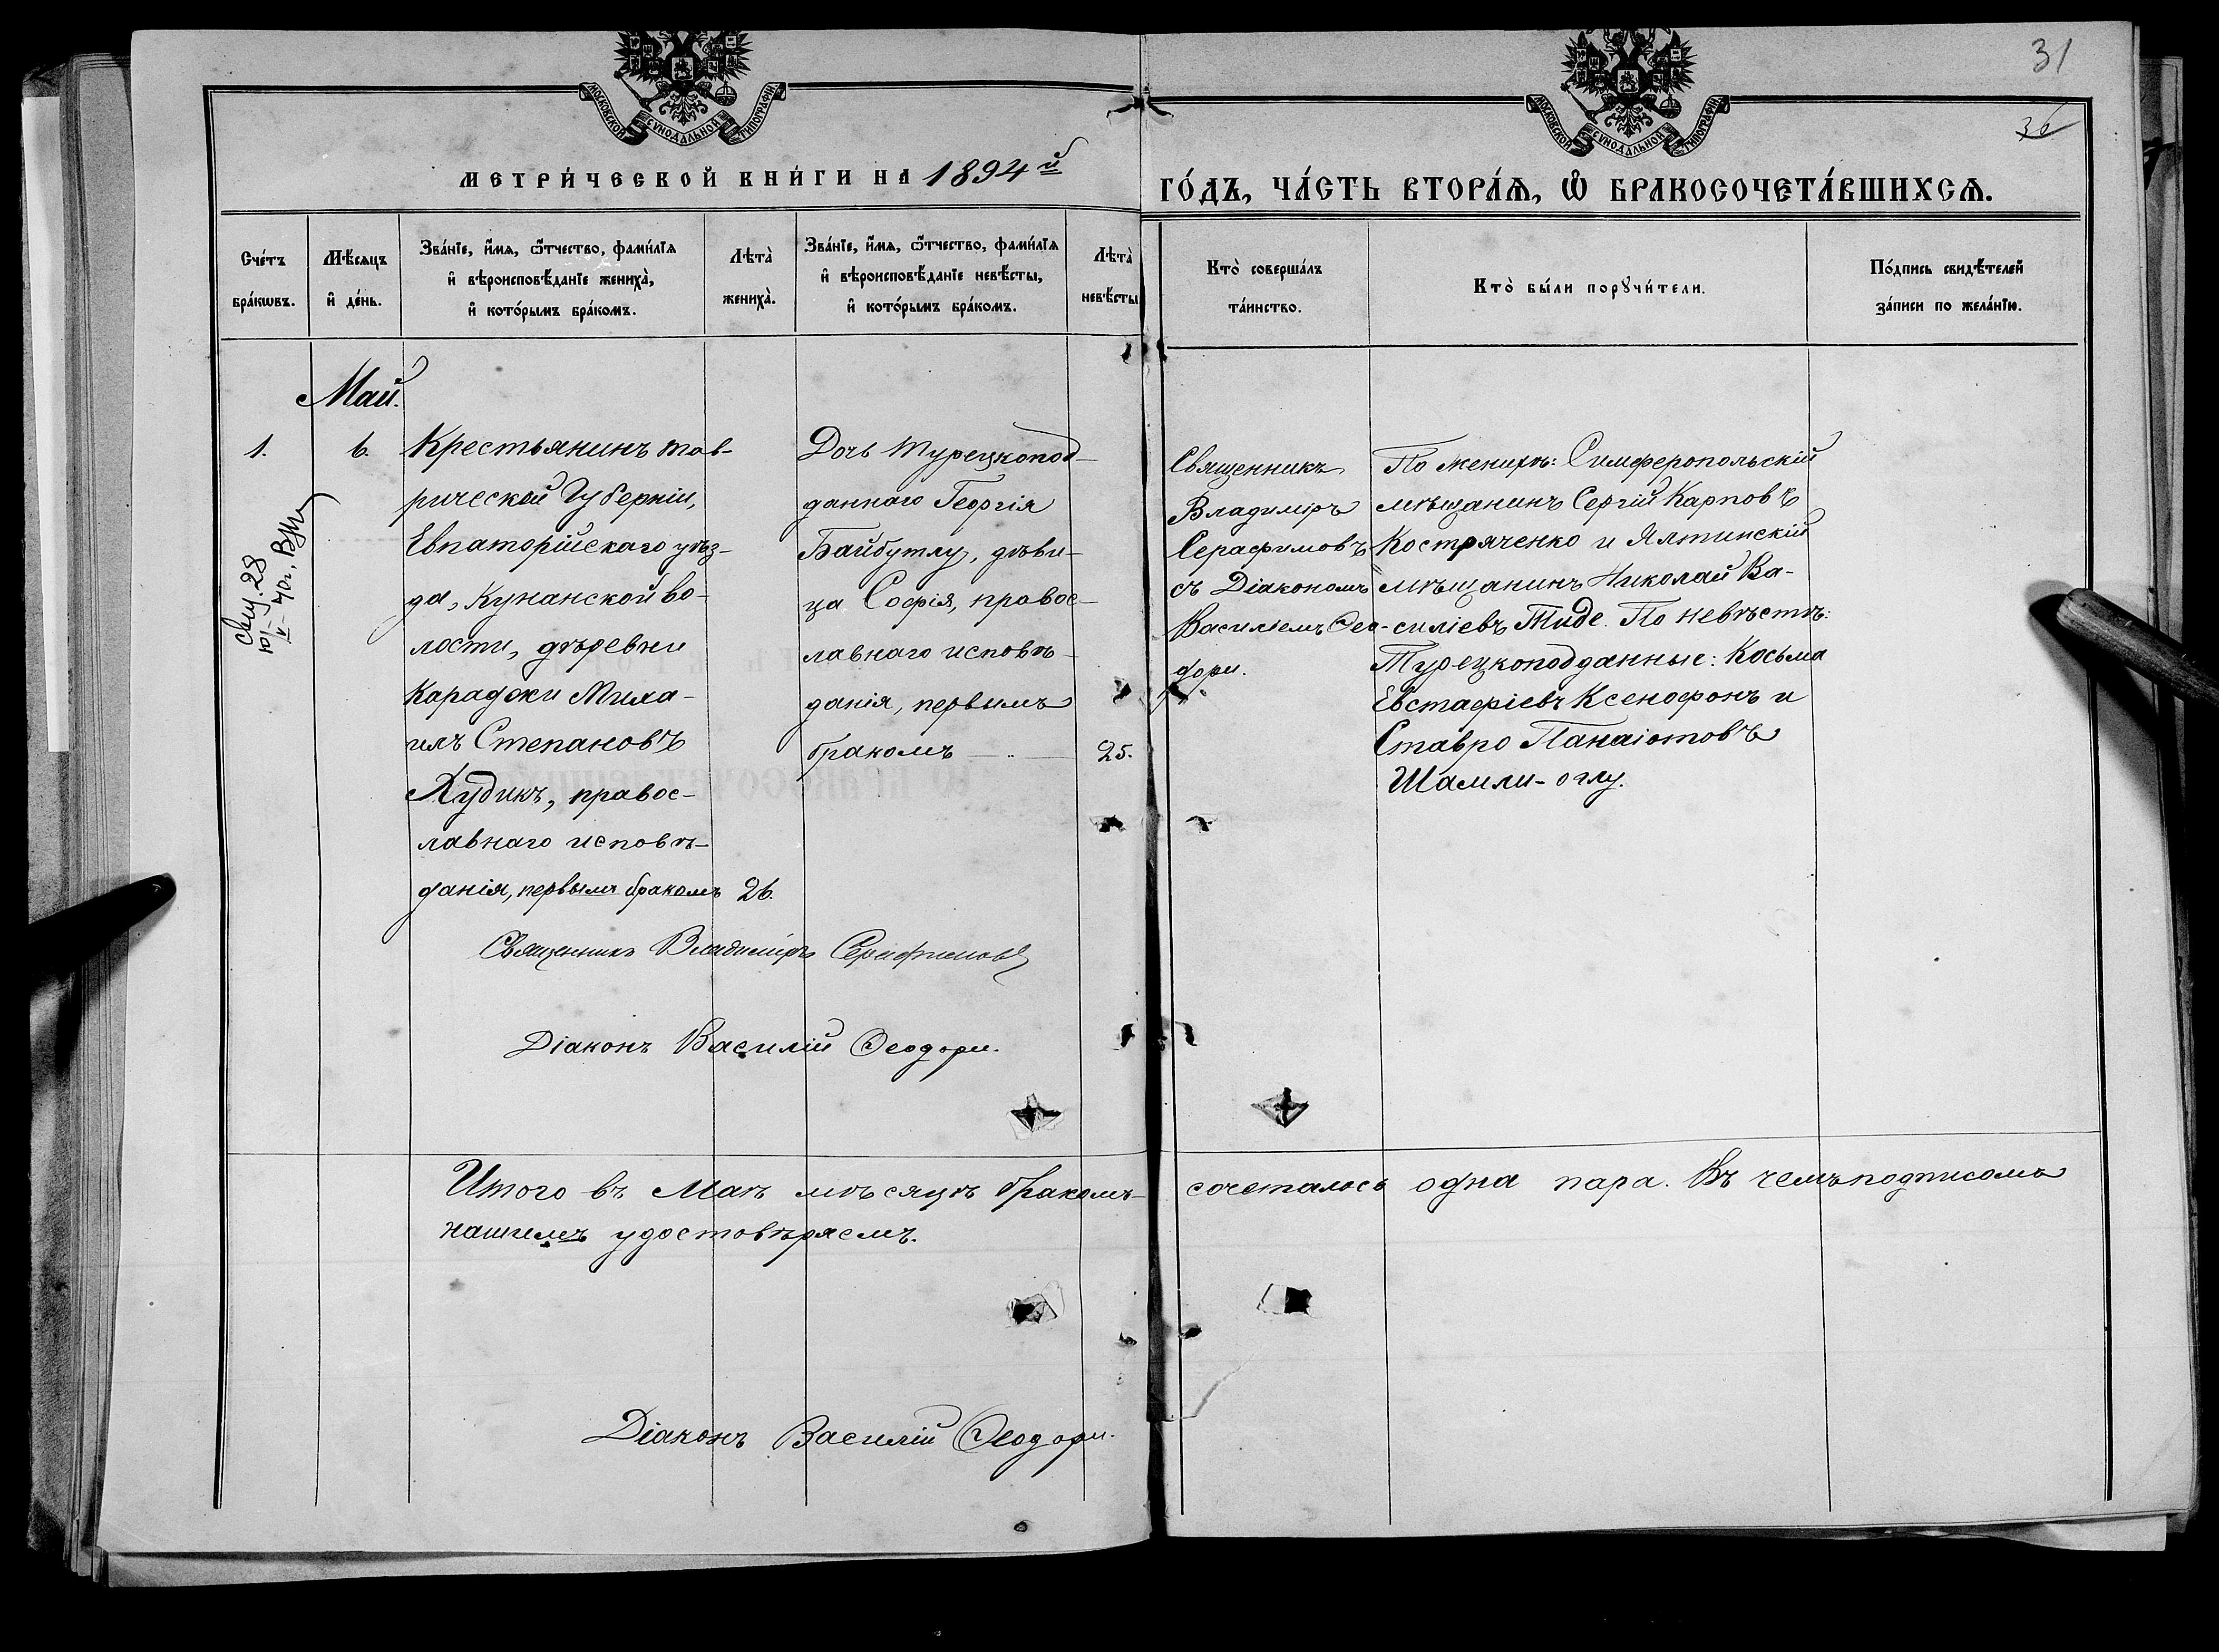 31
36
МОСКОВСКОЙ СѴНОДАЛЬНОЙ ТИПОГРАФІИ
МОСКОВСКОЙ СѴНОДАЛЬНОЙ ТИПОГРАФІИ
МЕТРИ́ЧЕСКОЙ КНИ́ГИ НА 1894й
ГО́ДЪ, ЧА́СТЬ ВТОРА́Ѧ, Ѡ҆ БРАКОСОЧЕТА́ВШИХСѦ.
Сче́тъ
бра́кѡвъ.
Мѣ́сяцъ
и҆ де́нь.
Зва́нїе, и҆́мѧ, ѻ҆́тчество, фами́лїѧ
и҆ вѣроисповѣ́данїе жениха̀,
и҆ кото́рымъ бра́комъ.
Лѣта̀
жениха̀.
Зва́нїе, и҆́мѧ, ѻ҆́тчество, фами́лїѧ
и҆ вѣроисповѣ́данїе невѣ́сты,
и҆ кото́рымъ бра́комъ.
Лѣта̀
невѣ́сты
Кто̀ соверша́лъ
та́инство.
Кто̀ бы́ли порꙋчи́тели.
По́дпись свидѣ́телей
за́писи по жела́нїю.
Май.
1.
6.
Крестьянинъ Тав-
рической Губерніи,
Евпаторійскаго уѣз-
да, Кунанской во-
лости, дѣревни
Караджи Миха-
илъ Степановъ
Худикъ, правос-
лавнаго исповѣ-
данія, первымъ бракомъ
26.
Дочь Турецкопод-
даннаго Георгія
Байбутлу, дѣви-
ца Софія, правос-
лавнаго исповѣ-
данія, первымъ
бракомъ
25.
Священникъ
Владиміръ
Серафимовъ
съ Діакономъ
Василіемъ Ѳео-
дори.
По женихѣ: Симферопольскій
мѣщанинъ Сергій Карповъ
Костряченко и Ялтинскій
мѣщанинъ Николай Ва-
силіевъ Тиде. По невѣстѣ:
Турецкоподданные: Косьма
Евстафіевъ Ксенофонъ и
Ставро Панаіотовъ
Шамли-оглу.
свид. 28
Священникъ Владиміръ Серафимовъ
Діаконъ Василій Ѳеодори.
Итого въ Маѣ мѣсяцѣ бракомъ сочеталось одна пара. Въ чемъ подписомъ
нашимъ удостовѣряемъ.
Діаконъ Василій Ѳеодори.